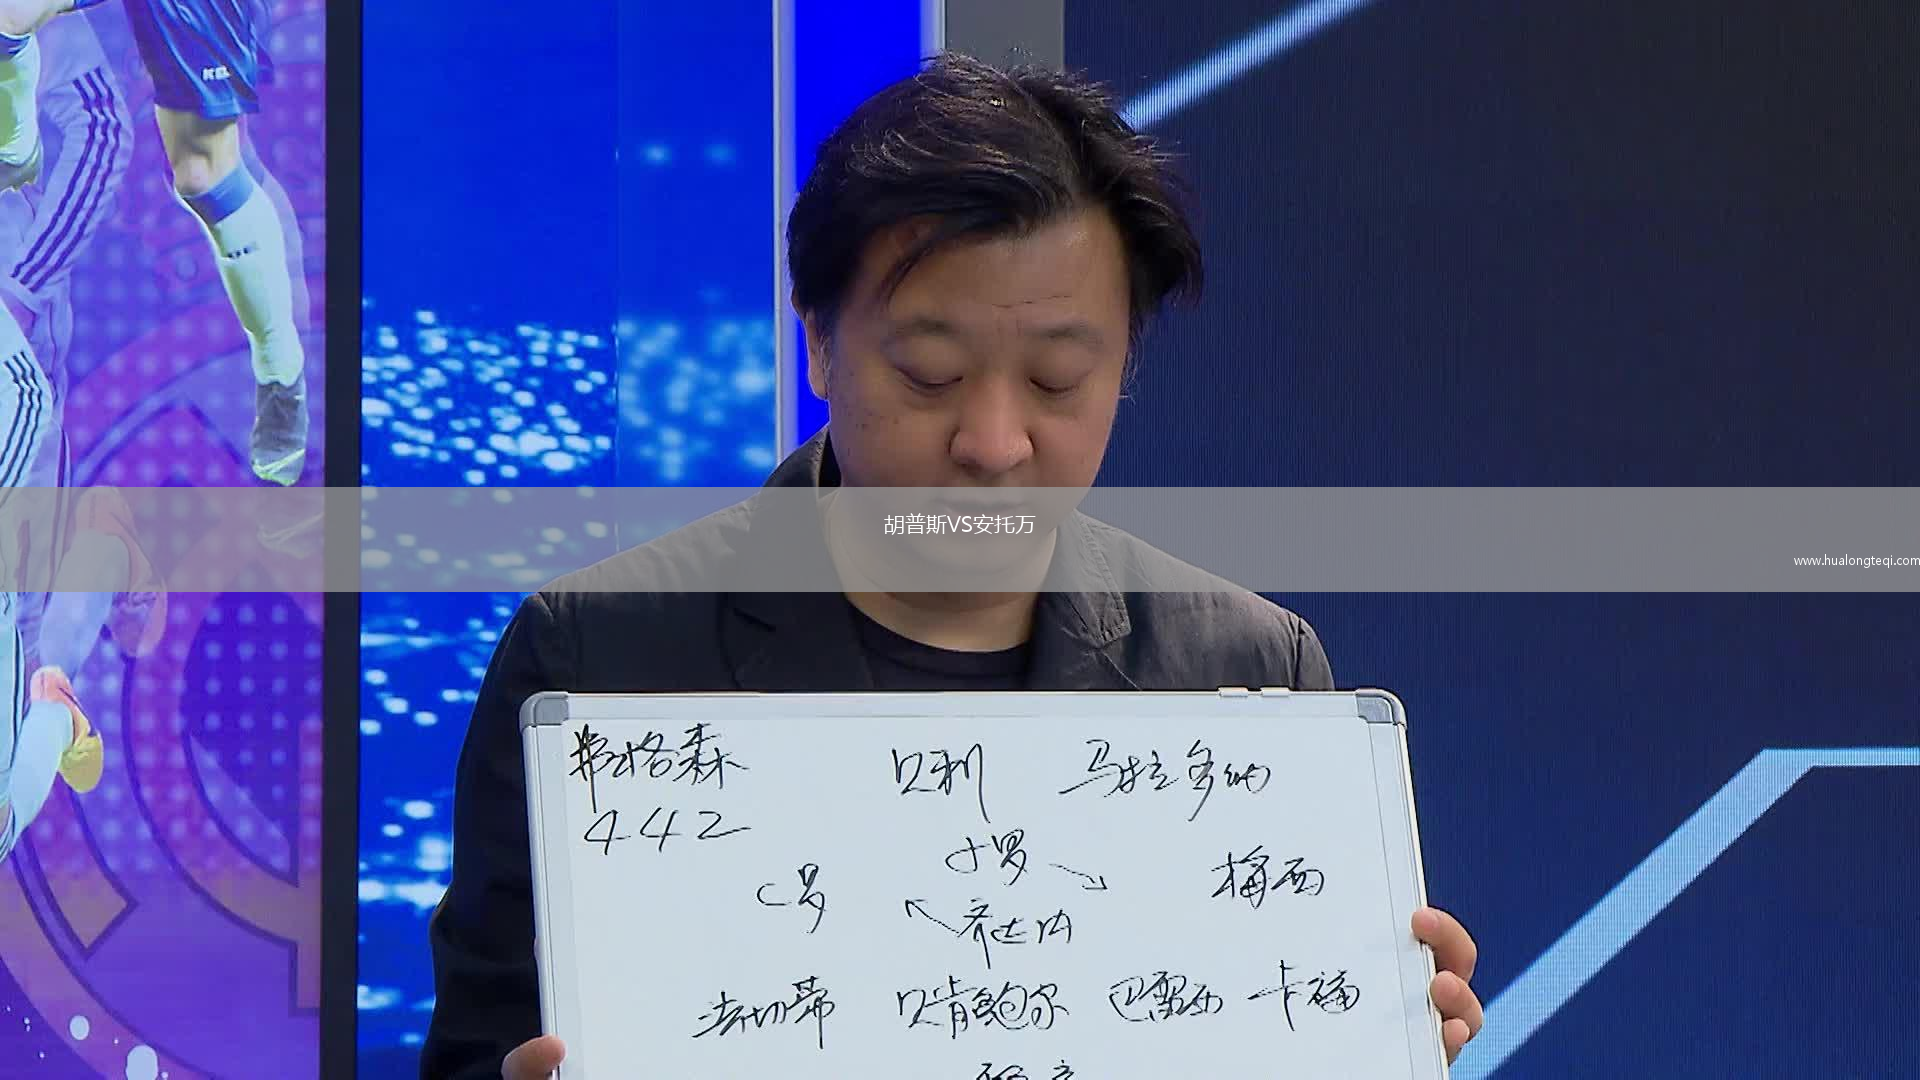 KEL
胡普斯VS安托万
www.hualongteqi.com
弗格森 贝利 马拉多纳
442
小罗
C罗 梅西
齐达内
法切蒂 贝肯鲍尔 巴雷西 卡福